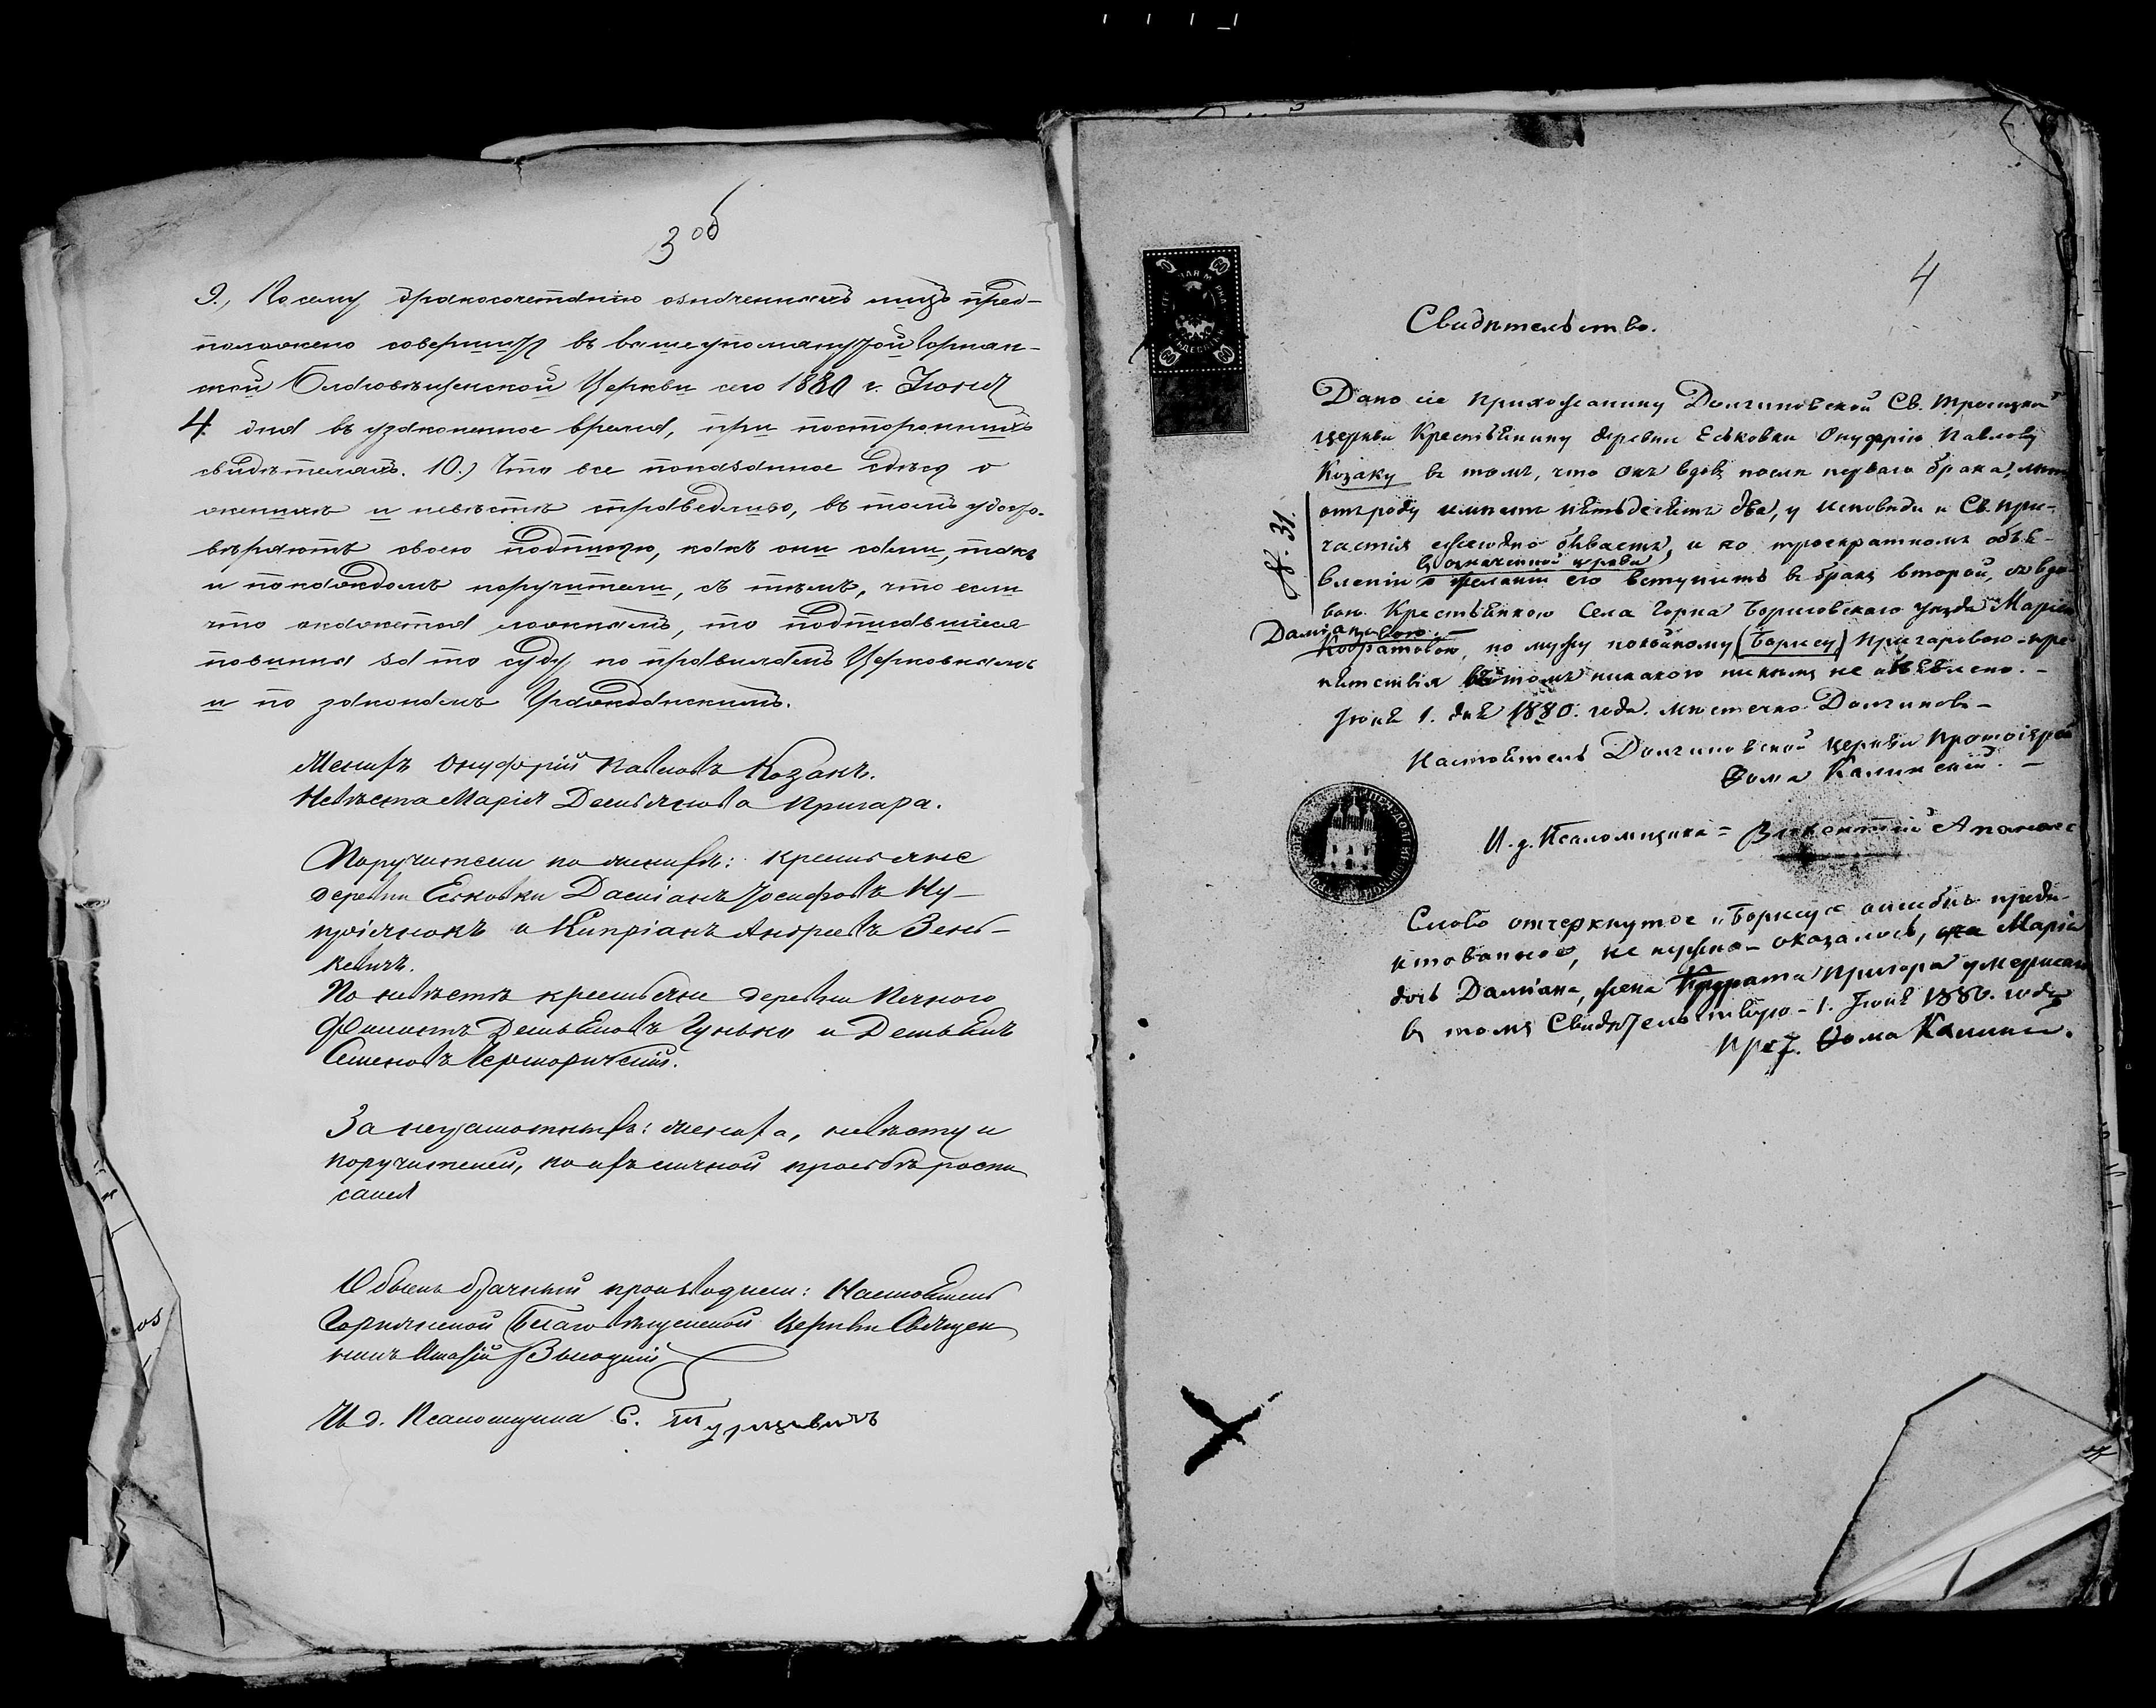 3 об
9., По сему бракосочетанію означенныхъ лицъ пред-
положено совершить въ вышеупомянутой Горнан-
ской Благовѣщенской Церкви сего 1880 г. Іюня
4 дня въ узаконенное время, при постороннихъ
свидѣтеляхъ. 10.) Что все показанное здѣсь о
женихѣ и невѣстѣ справедливо, въ томъ удосто-
вѣряютъ своею подписью, какъ они сами, такъ
и по каждомъ поручители, съ тѣмъ, что если
что окажется ложнымъ, то подписавшіеся
повинны за то суду по правиламъ Церковнымъ
и по законамъ Гражданскимъ.
Женихъ Онуфрій Павловъ Козакъ.
Невѣста Марія Демьянова Пригара.
Поручители по женихѣ: крестьяне
деревни Еськовки Даміанъ Іосифовъ Ку-
пріянокъ и Кипріанъ Андреевъ Зень-
кевичъ.
По невѣстѣ крестьяне деревни
Филиппъ Демьяновъ Гунько и Демьянъ
Семеновъ
За неграмотныхъ: жениха, невѣсту и
поручителей, по ихъ личной просьбѣ роспи
сался
Обыскъ брачный производили: Настоятель
Горнанской Благовѣщенской Церкви Священ
никъ
И. д. Псаломщика С.
4
Свидѣтельство.
Дано сіе прихожанину Долгиновской Св. Троицкой
церкви Крестьянину деревни Еськовки Онуфрію Павлову
Козаку въ томъ, что онъ вдовъ послѣ перваго брака, лѣтъ
отъ роду имѣетъ пятьдесятъ два, у исповѣди и Св. При-
частія ежегодно бываетъ, и по троекратномъ объя-
въ означенной церкви
вленіи о желаніи его вступить въ бракъ второй, со вдо-
вою Крестьянкою Села Горна Борисовскаго уѣзда Маріею
Даміановою
Кодратовою, по мужу покойному (Борису) Пригаровою - пре-
пятствія въ томъ никакого никѣмъ не объявлено. -
Іюня 1. дня 1880. года. Мѣстечко Долгиновъ -
Настоятель Долгиновской церкви Протоіерей
Ѳома Калинскій. -
И. д. Псаломщика = Викентій
№. 31.
Слово отчеркнутое „Борису" ошибкѣ преди-
ктованное, не нужно - оказалось, она Марія
дочь Даміана, жена Кодрата Пригара умершаго
въ томъ Свидѣтельствую - 1. Іюня 1880. года
Прот. Ѳома Калинскій.